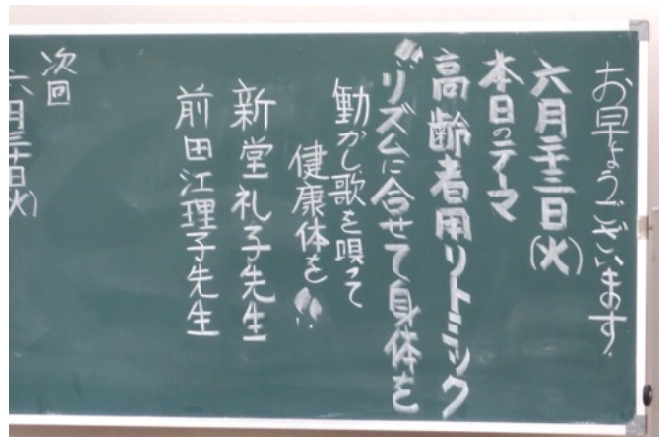 お早ようございます.
六月二十三日(火)
本日のテーマ
高齢者用リトミック
"リズムに合せて身体を
動かし歌を唄って
健康体を!!"
新堂礼子先生
前田江理子先生
次回
六月三十日(火)